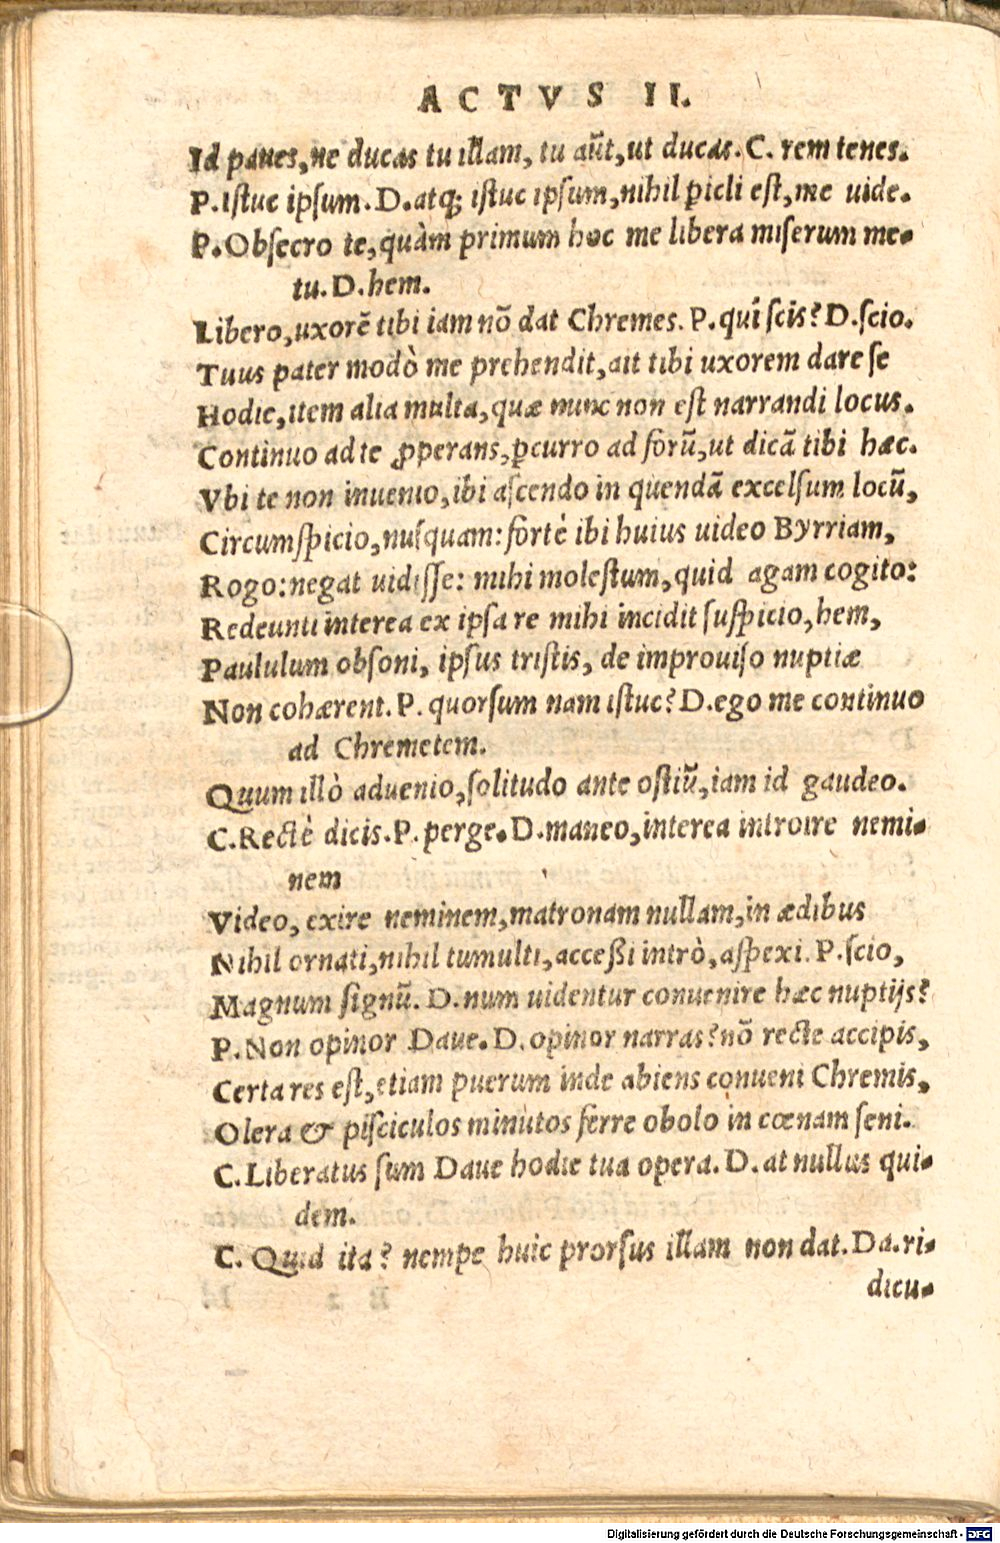 ACTVS II.
Id paues, ne ducas tu illam, tu aũt, ut ducas. C. rem tenes.
P. istuc ipsum. D. atq; istuc ipsum, nihil ꝑicli est, me uide.
P. Obsecro te, quàm primum hoc me libera miserum me-
tu. D. hem.
Libero, uxorẽ tibi iam nõ dat Chremes. P. qui scis? D. scio.
Tuus pater modò me prehendit, ait tibi uxorem dare se
Hodie, item alia multa, quæ nunc non est narrandi locus.
Continuo ad te ꝓperans, ꝑcurro ad forũ, ut dicã tibi hæc.
Vbi te non inuenio, ibi ascendo in quendã excelsum locũ,
Circumspicio, nusquam: fortè ibi huius uideo Byrriam,
Rogo: negat uidisse: mihi molestum, quid agam cogito:
Redeunti interea ex ipsa re mihi incidit suspicio, hem,
Paululum obsoni, ipsus tristis, de improuiso nuptiæ
Non cohærent. P. quorsum nam istuc? D. ego me continuo
ad Chremetem.
Quum illò aduenio, solitudo ante ostiũ, iam id gaudeo.
C. Rectè dicis. P. perge. D. maneo, interea introire nemi-
nem
Video, exire neminem, matronam nullam, in ædibus
Nihil ornati, nihil tumulti, acceßi intrò, aspexi. P. scio,
Magnum signũ. D. num uidentur conuenire hæc nuptijs?
P. Non opinor Daue. D. opinor narras? nõ recte accipis,
Certa res est, etiam puerum inde abiens conueni Chremis,
Olera & pisciculos minutos ferre obolo in cœnam seni.
C. Liberatus sum Daue hodie tua opera. D. at nullus qui-
dem.
C. Quid ita? nempe huic prorsus illam non dat. Da. ri-
dicu-
Digitalisierung gefördert durch die Deutsche Forschungsgemeinschaft - DFG